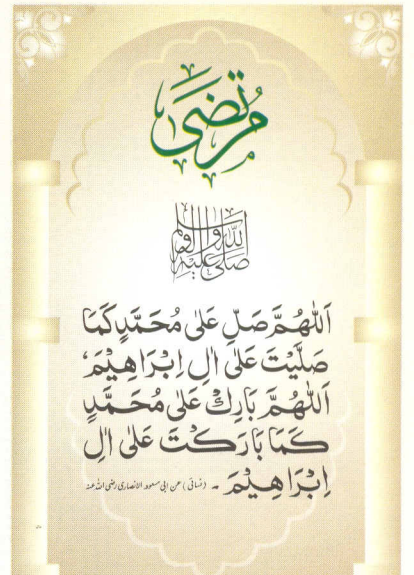 مُرْتَضَى
صَلَّى اللهُ عَلَيْهِ وَاٰلِهٖ وَسَلَّمَ
اَللّٰهُمَّ صَلِّ عَلٰى مُحَمَّدٍ كَمَا
صَلَّيْتَ عَلٰى اٰلِ اِبْرَاهِيْمَ،
اَللّٰهُمَّ بَارِكْ عَلٰى مُحَمَّدٍ
كَمَا بَارَكْتَ عَلٰى اٰلِ
اِبْرَاهِيْمَ ۔ (نسائی) عن ابی مسعود الانصاری رضی اللہ عنہ